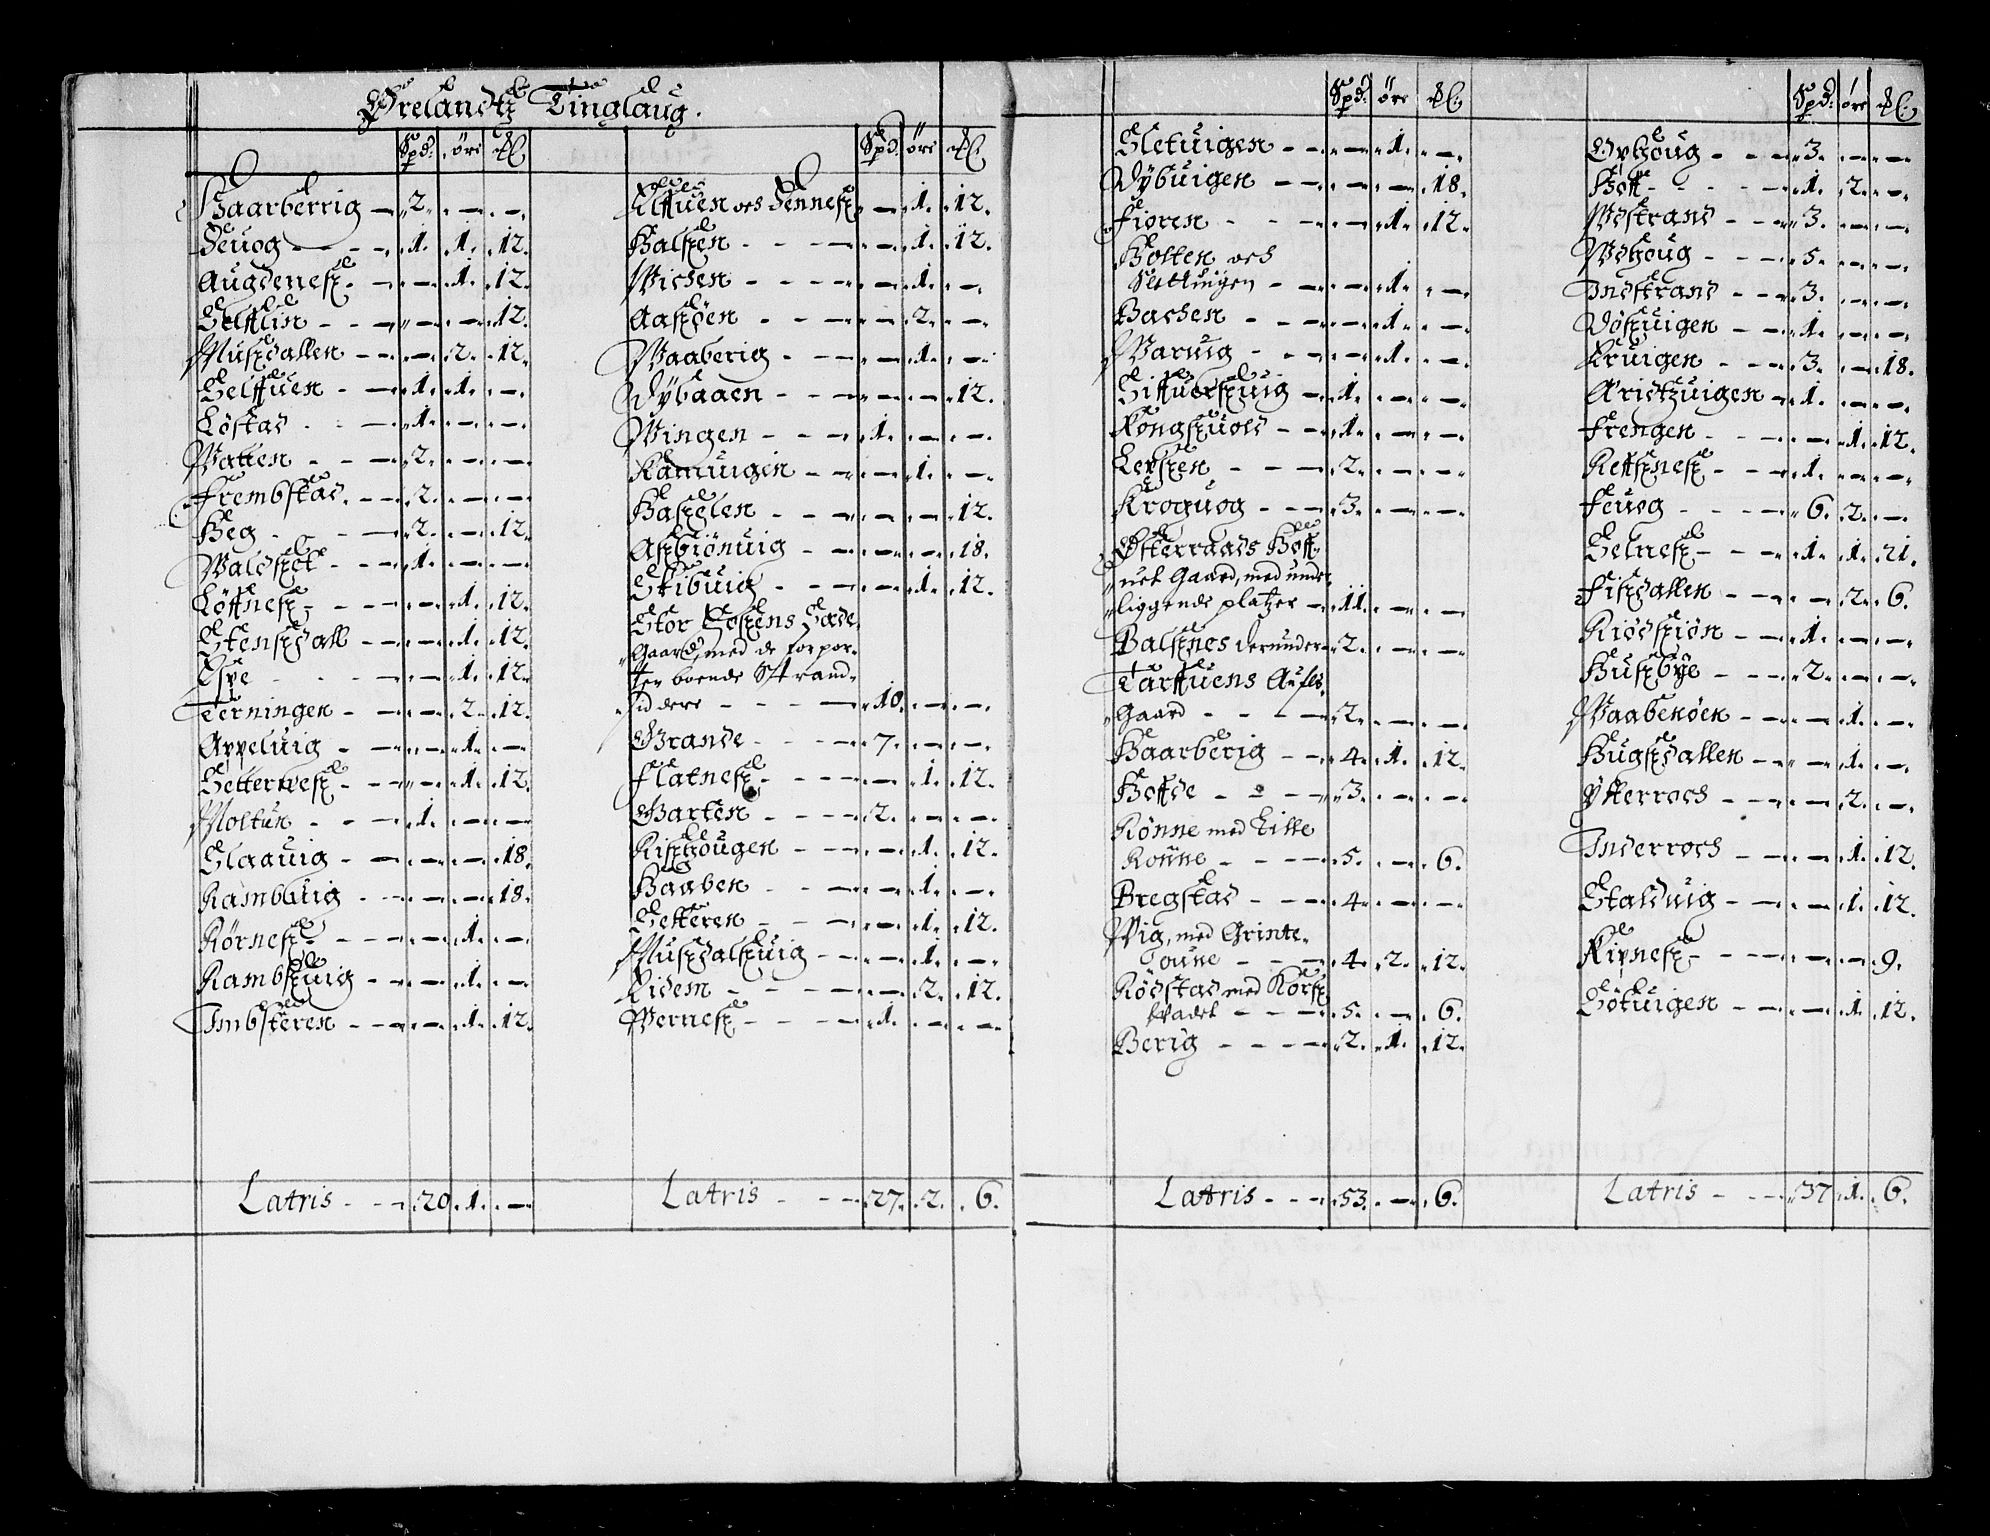 Ørelandtz Tinglaug.
Spd: øre ₰.
Haarberrig – 2. – –
Deuog – 1. 1. 12.
Augdenesz – – 1. 12.
Selfflin – – – 12.
Muszdallen – – 2. 12.
Selffuen – 1. 1. –
Løstad – 1. – –
Watten – 2. – –
Frembstad – 2. – –
Heg – 2. – 12.
Waldszet – 1. – –
Løffnesz – – 1. 12.
Stenszdall – – 1. 12.
Espe – – 1. 12.
Terningen – – 2. 12.
Appeluig – – 1. –
Setternesz – – 1. 12.
Moltun – 1. – –
Slaauig – – – 18.
Rambuig – – – 18.
Rørnesz – – 1. –
Rambszuig – – 1. –
Imbsteren – – 1. 12.
Latris – 20. 1. –
Spd. øre ₰.
Elffuen ved Dennesz – – 1. 12.
Halszen – – 1. 12.
Wichen – – 1. –
Aaszøen – – 2. –
Waaberig – – 1. –
Dybaaen – – – 12.
Wingen – 1. – –
Kamuigen – – 1. –
Haszelen – – – 12.
Aszbiønuig – – – 18.
Skibuig – – 1. 12.
Stor Foszens Sæde
Gaard, med de for por-
ten boende Strand-
sidere – 10. – –
Grande – 7. – –
Flatnesz – – 1. 12.
Garten – 2. – –
Riszhougen – – 1. 12.
Haaben – – 1. –
Setteren – – 1. 12.
Muszdalszuig – – 1. –
Eidem – – 2. 12.
Wernesz – 1. – –
Latris – 27. 2. 6.
Spd: øre ₰.
Sletuigen – – 1. –
Dybuigen – – – 18.
Fioren – – 1. 12.
Holten och
Slettuigen – – 1. –
Bachen – – 1. –
Waruig – – 1. –
Siffuerszuig – 1. – –
Kongszuold – 1. – –
Lerszen – 2. – –
Kroguog – 3. – –
Østerraads Hoff-
uet Gaard, med unde-
liggende platzer – 11. – –
Balsznes derunder – 2. – –
Tarffuens Aufls
Gaard – 2. – –
Haarberig – 4. 1. 12.
Hoffde – 3. – –
Rønne med Lille
Rønne – 5. – 6.
Bregstad – 4. – –
Wig, med Grinte-
Toune – 4. 2. 12.
Rødstad med Korsz
wadet – 5. – 6.
Berig – 2. 1. 12.
Latris – 53. – 6.
Spd: øre ₰.
Ophoug – 3. – –
Hoff – 1. 2. –
Westrand – 3. – –
Wehoug – 5. – –
Indstrand – 3. – –
Døszuigen – 1. – –
Kruigen – 3. – 18.
Aristzuigen – 1. – –
Frengen – – 1. 12.
Reffsznesz – 1. – –
Feuog – 6. 2. –
Selnesz – 1. 1. 21.
Fiszdallen – – 2. 6.
Kiødsziøn – 1. – –
Huszbye – 2. – –
Waabenøen – – 1. –
Hugszdallen – – 1. –
Ytterroch – – 2. –
Inderroch – – 1. 12.
Stalduig – – 1. 12.
Kipnesz – – – 9.
Søtuigen – – 1. 12.
Latris – 37. 1. 6.